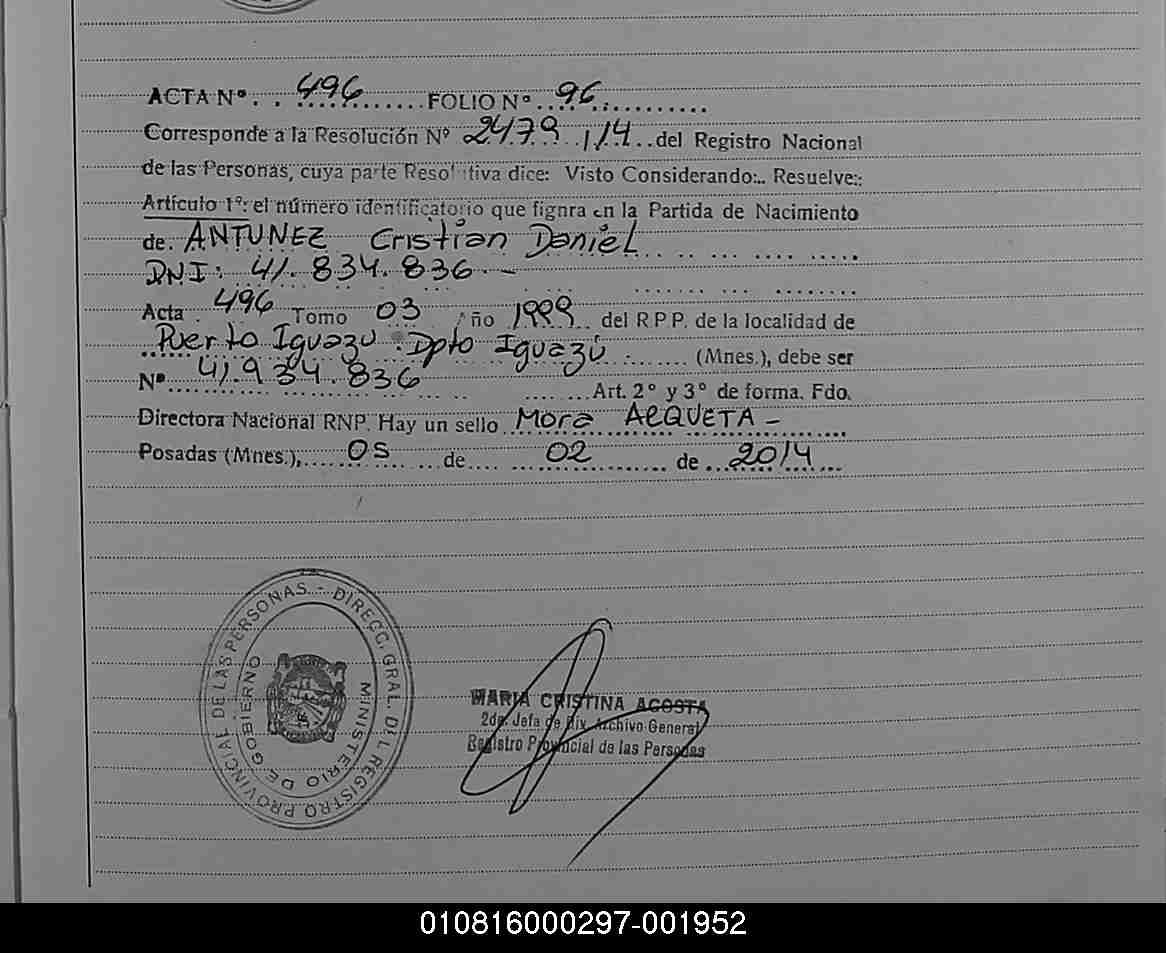 ACTA Nº 496 FOLIO Nº 96
Corresponde a la Resolución Nº 2479 /14 del Registro Nacional
de las Personas, cuya parte Resolutiva dice: Visto Considerando:.. Resuelve:
Artículo 1º: el número identificatorio que fignra en la Partida de Nacimiento
de. ANTUNEZ Cristian Daniel
DNI: 41.834.836 -
Acta 496 Tomo 03 Año 1999 del R P P. de la localidad de
Puerto Iguazú Dpto Iguazú (Mnes.), debe ser
Nº 41.934.836 Art. 2º y 3º de forma. Fdo.
Directora Nacional RNP. Hay un sello Mora ARQUETA -
Posadas (Mnes.), 05 de 02 de 2014
PROVINCIAL DE LAS PERSONAS - DIRECC. GRAL. DEL REGISTRO
MINISTERIO DE GOBIERNO
MARIA CRISTINA ACOSTA
2da. Jefa de Div. Archivo General
Registro Provincial de las Personas
010816000297-001952